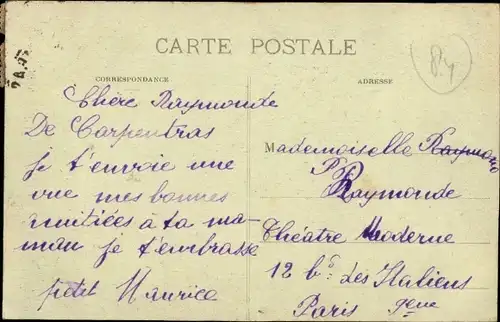 CARTE POSTALE
CORRESPONDANCE
ADRESSE
84
Chère Raymonde
De Carpentras
je t'envoie une
vue mes bonnes
amitiées à ta ma-
man je t'embrasse
petit Maurice
Mademoiselle
Raymonde
Théatre Moderne
12 bd des Italiens
Paris 9eme